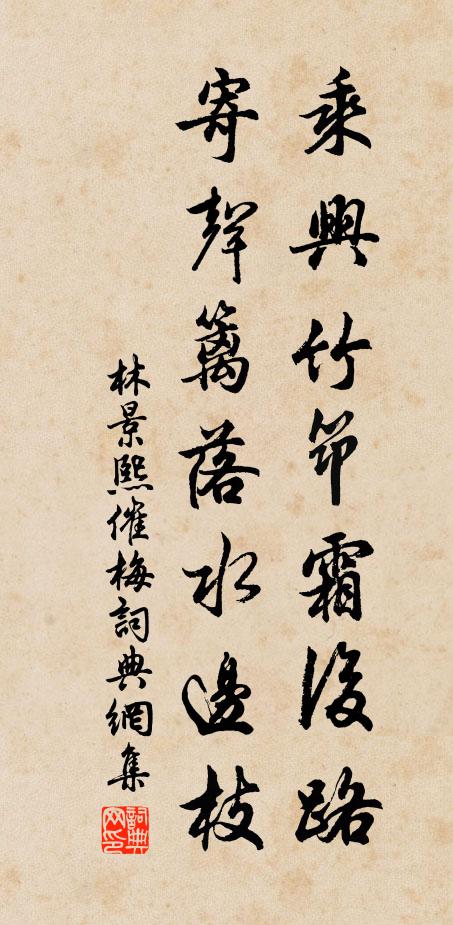 乘興竹筇霜後路
寄聲籬落水邊枝
林景熙催梅詞典網集
詞典网印